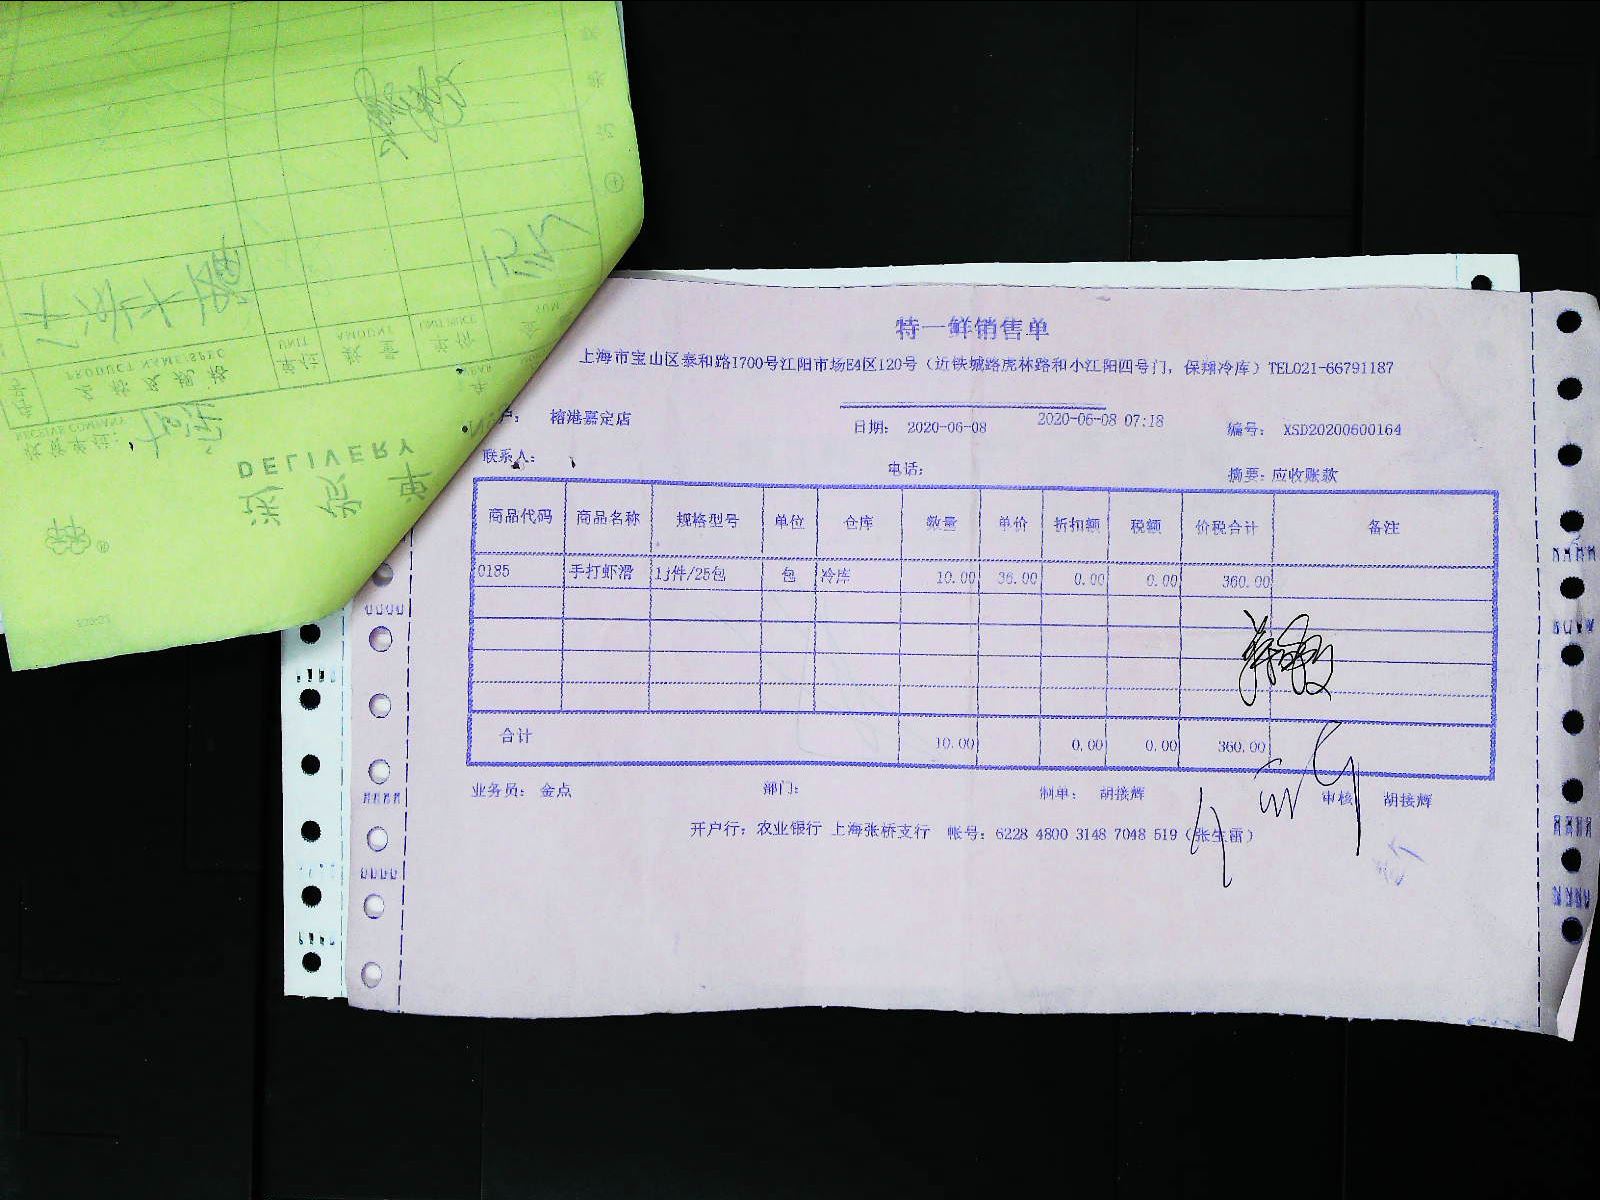 特一鲜销售单
上海市宝山区泰和路1700号江阳市场E4区120号（近铁城路虎林路和小江阳四号门，保翔冷库）TEL021-66791187
户： 榕港嘉定店 日期： 2020-06-08 2020-06-08 07:18 编号： XSD20200600164
联系人： 电话： 摘要：应收账款
商品代码 商品名称 规格型号 单位 仓库 数量 单价 折扣额 税额 价税合计 备注
0185 手打虾滑 1j件/25包 包 冷库 10.00 36.00 0.00 0.00 360.00
合计 10.00 0.00 0.00 360.00
业务员： 金点 部门： 制单： 胡接辉 审核 胡接辉
开户行：农业银行 上海张桥支行 帐号：6228 4800 3148 7048 519（张生雷）
送货单
DELIVERY
收货单位：
RECEIVE COMPANY
货号 名称及规格 单位 数量 单价 金
PRODUCT NAME/SPEC UNIT AMOUNT UNIT PRICE SUM